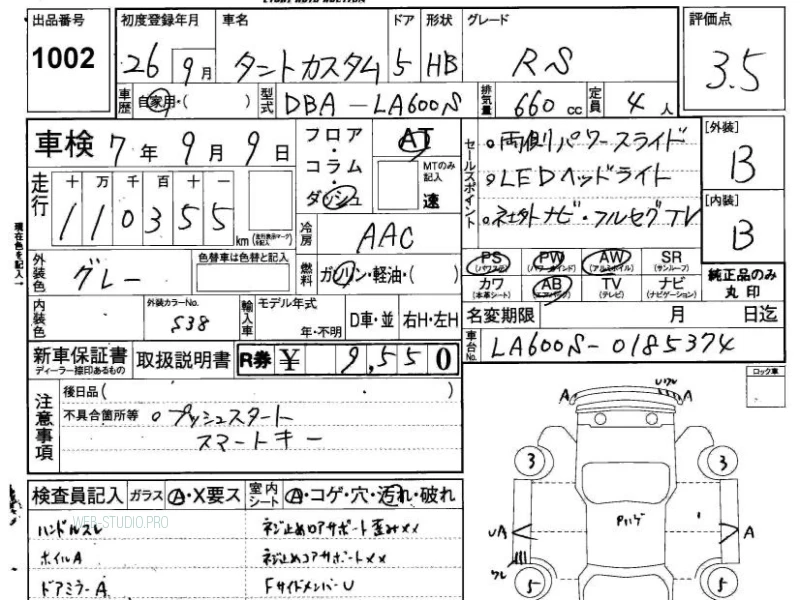 出品番号
1002
初度登録年月
26 9月
車名
タントカスタム
ドア
5
形状
HB
グレード
RS
評価点
3.5
車歴
自家用・( )
型式
DBA-LA600S
排気量
660 cc
定員
4 人
車検 7年 9月 9日
フロア・コラム・ダッシュ
AT
MTのみ記入
速
セールスポイント
。両側パワースライド
。LEDヘッドライト
。社外ナビ・フルセグTV
[外装]
B
[内装]
B
走行
十 万 千 百 十 一
110355
km
現在色を記入→
冷房
AAC
外装色
グレー
色替車は色替と記入
燃料
ガソリン・軽油・( )
PS PW AW SR
(パワステ) (パワーウインド) (アルミホイル) (サンルーフ)
カワ AB TV ナビ
(本革シート) (エアバッグ) (テレビ) (ナビゲーション)
純正品のみ丸印
内装色
外装カラーNo.
S38
輸入車
モデル年式
年・不明
D車・並
右H・左H
名変期限 月 日迄
車台No.
LA600S-0185374
新車保証書
ディーラー捺印あるもの
取扱説明書
R券 ¥ 9,550
ロック車
注意事項
後日品( )
不具合箇所等 。プッシュスタート
スマートキー
検査員記入
ガラス
A・X要ス
室内シート
A・コゲ・穴・汚れ・破れ
ハンドルスレ
ネジ止めロアサポート歪み××
ホイルA
ネジ止めコアサポート××
ドアミラーA
FサイドメンバーU
WEB-STUDIO.PRO
A
A
3
3
UA
A
5
5